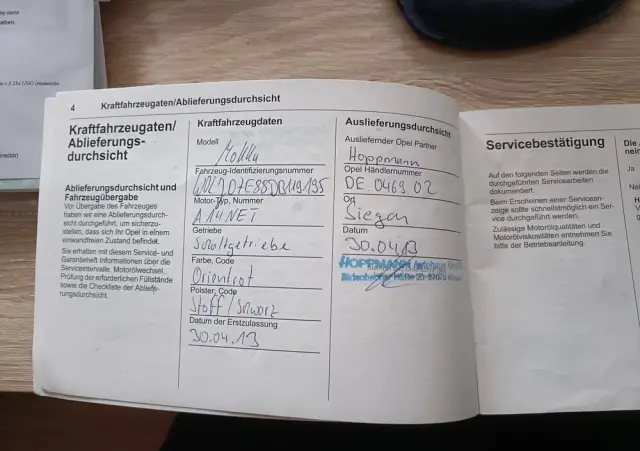 4 Kraftfahrzeugaten/Ablieferungsdurchsicht
Kraftfahrzeugaten/
Ablieferungs-
durchsicht
Ablieferungsdurchsicht und
Fahrzeugübergabe
Vor Übergabe des Fahrzeuges
haben wir eine Ablieferungsdurch-
sicht durchgeführt, um sicherzu-
stellen, dass sich Ihr Opel in einem
einwandfreien Zustand befindet.
Sie erhalten mit diesem Service- und
Garantieheft Informationen über die
Serviceintervalle, Motorölwechsel,
Prüfung der erforderlichen Füllstände
sowie die Checkliste der Abliefe-
rungsdurchsicht.
Kraftfahrzeugdaten
Modell
Mokka
Fahrzeug-Identifizierungsnummer
Motor-Typ, Nummer
A14NET
Getriebe
Schaltgetriebe
Farbe, Code
Orientrot
Polster, Code
Stoff/Schwarz
Datum der Erstzulassung
30.04.13
Auslieferungsdurchsicht
Ausliefernder Opel Partner
Hoppmann
Opel Händlernummer
DE.0469.02
Ort
Siegen
Datum
30.04.13
HOPPMANN
Servicebestätigung
Auf den folgenden Seiten werden die
durchgeführten Servicearbeiten
dokumentiert.
Beim Erscheinen einer Servicean-
zeige sollte schnellstmöglich ein Ser-
vice durchgeführt werden.
Zulässige Motorölqualitäten und
Motorölviskositäten entnehmen Sie
bitte der Betriebsanleitung.
Ja